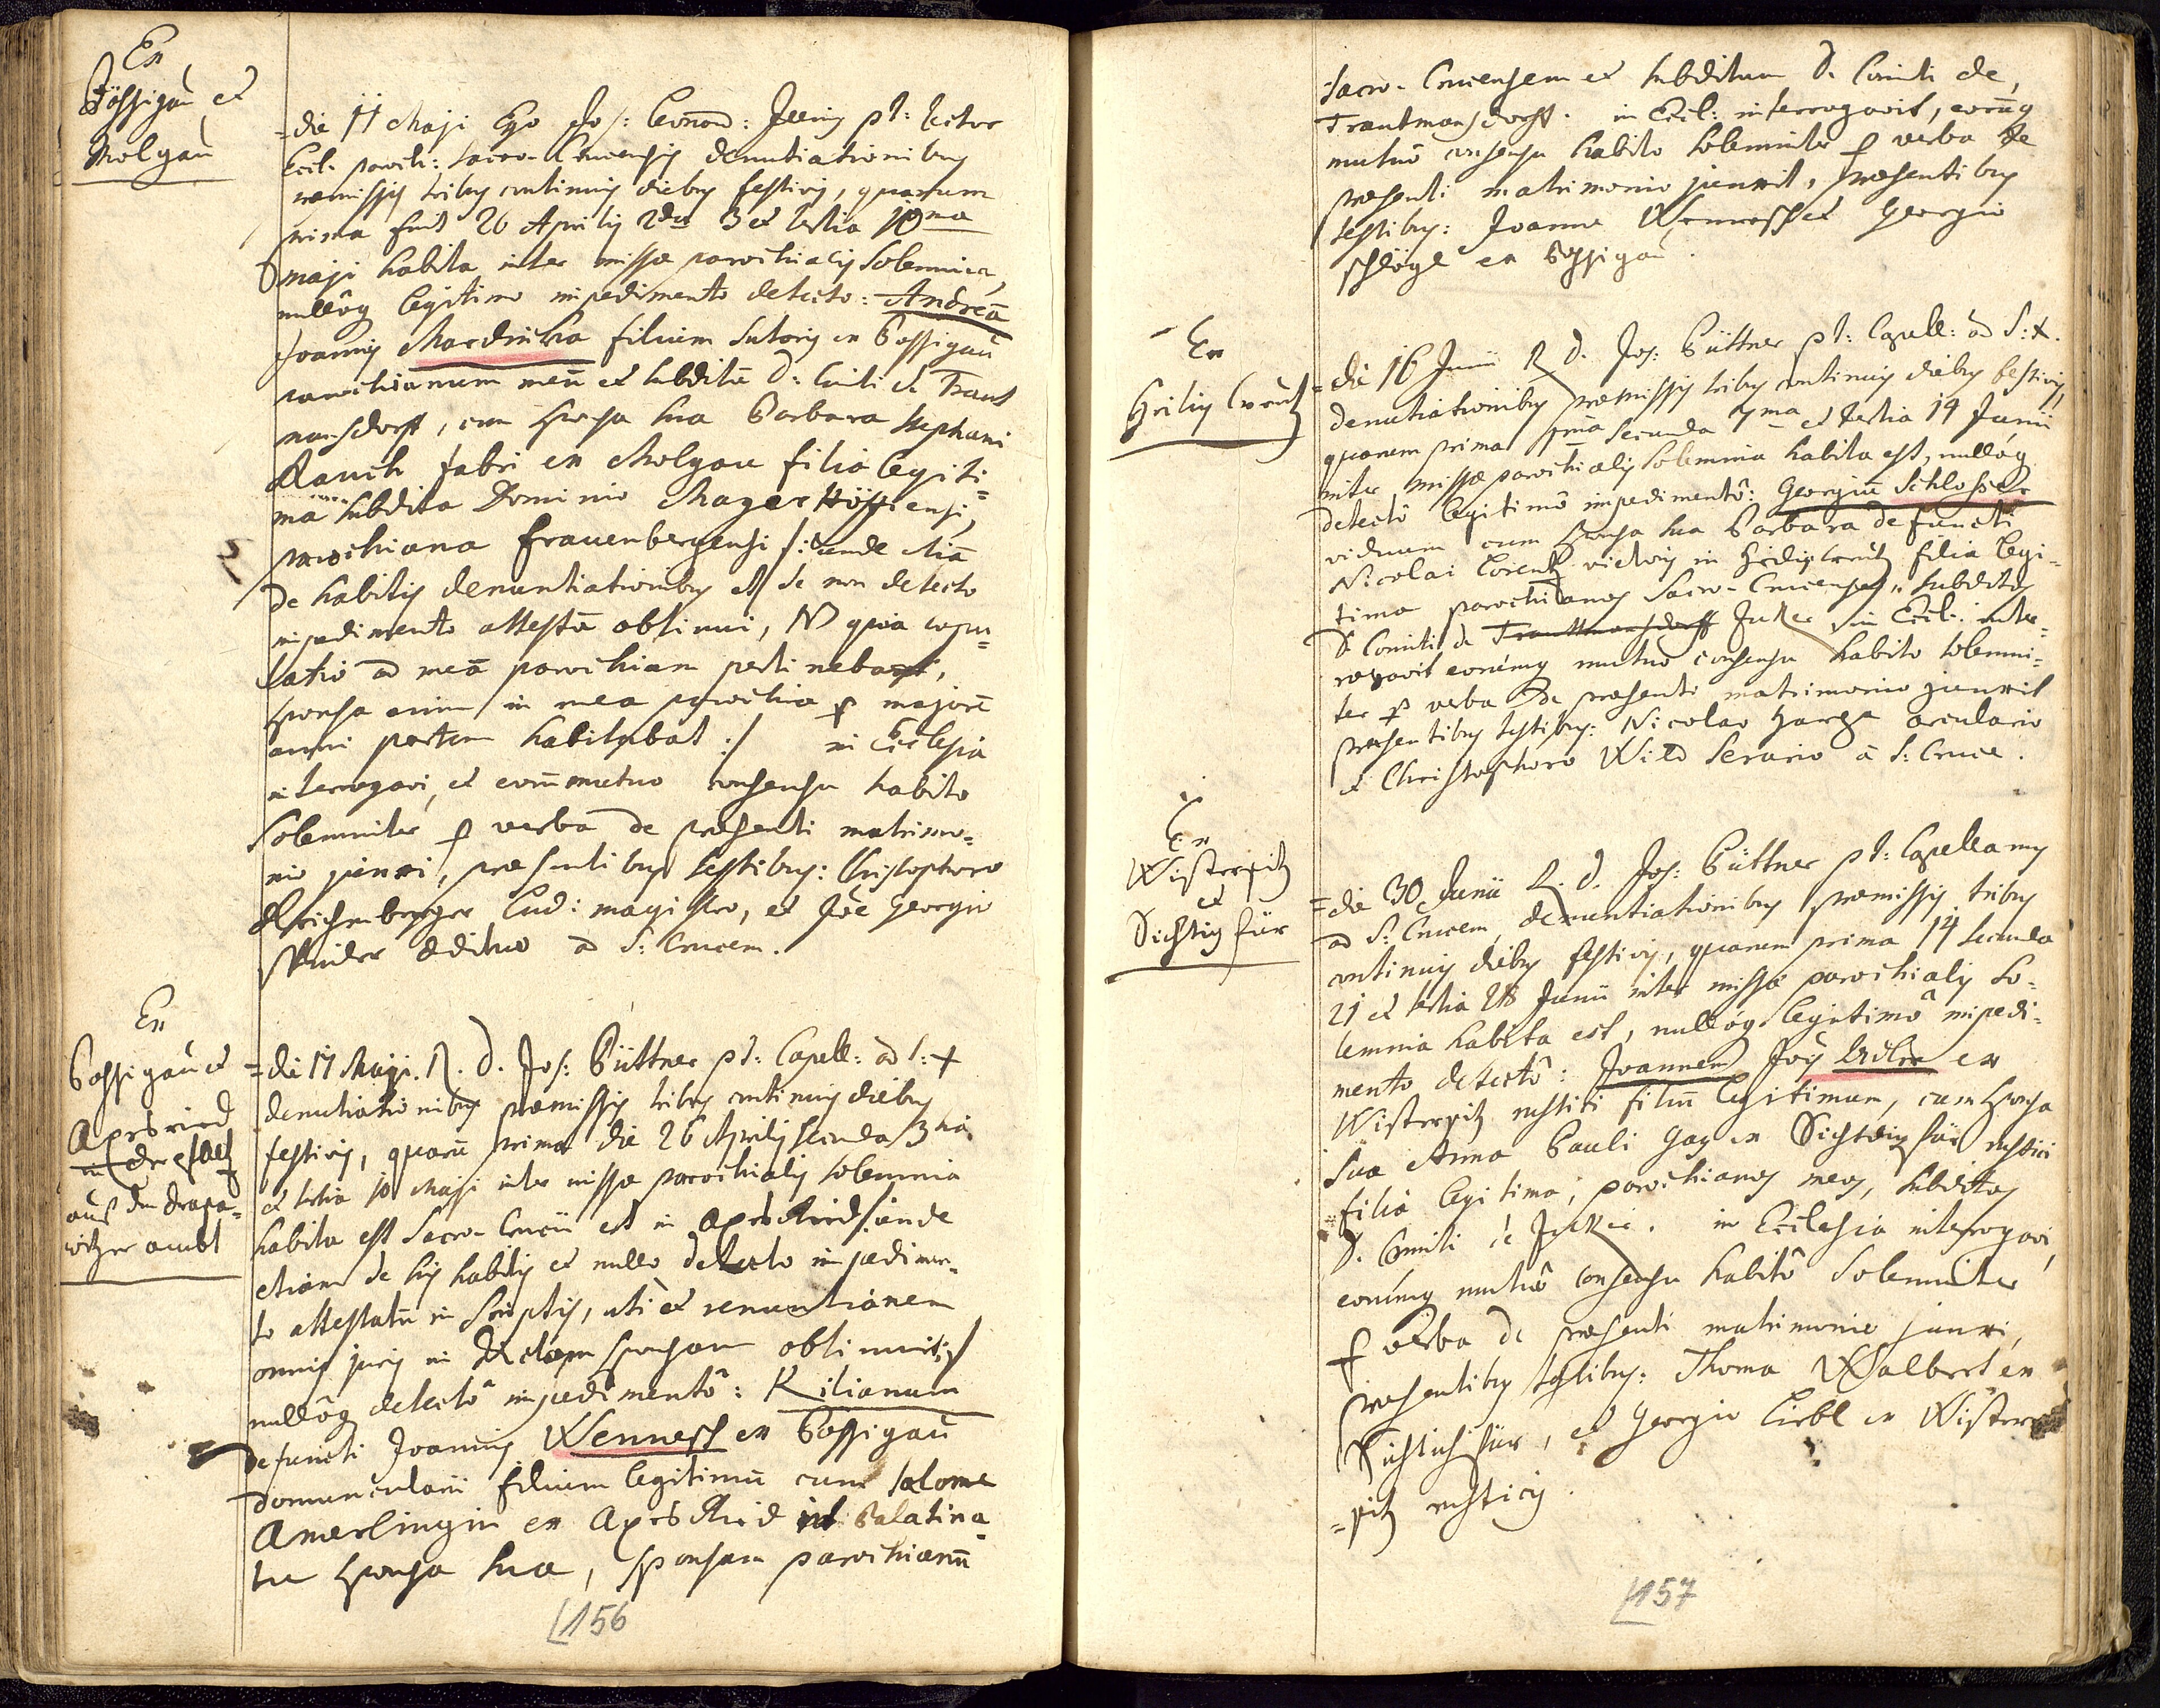 Ex
Possigau et
Molgau
= die 11 Maji Ego Jos: Leonard: pt: rector
Eccl: paroch: Sacro-Crucensis denuntiationibus
praemissis tribus continuis diebus festivis, quarum
prima fuit 26 Aprilis 2da 3 et tertia 10ma
maji habita inter missae parochialis solemnia,
nullôq legitimo impedimento detecto: Andreā
Joannis filium sutoris ex Possigau
parochianum meū et subditū D: Comiti de Traut
mansdorff, cum sponsa sua Barbara Stephani
Rauch fabri ex Molgau filia legiti=
ma subdita Dominio Mayerhöffensi,
parochiana frauenbergensi /: unde etiā
de habitis denuntiationibus et de non detecto
impedimento attestā obtinui, NB quia copu=
latio ad meā parochiam pertinebat,
sponsa enim in mea parochia p majorē
anni partem habitabat :/ in Ecclesia
interrogavi, et eorū mutuo consensu habito
Solemniter p verba de praesenti matrimo=
nio junxi, praesentibus testibus: Christophoro
Reichenberger Lud: magistro, et Joē Georgio
aedituo ad S: Crucem.
Ex
Possigau et
Apesried
in der Pfaltz
auß dem
witzer ambt
= die 17 Maji. R. D. Jos: Büttner pt: Capell: ad S: +
denutiationibus praemissis tribus continuis diebus
festivis, quarū prima die 26 Aprilis secunda 3tia
et tertia 10 Maji inter missae parochialis solemnia
habita est Sacro-Crucii et in Apesried /: unde
etiam de his habitis et nullo detecto impedimen=
to attestatū in scriptis, uti et renuntianem
omnis juris in dictam sponsam obtinuit :/
nullôq detectô impedimentô: Kilianum
defuncti Joannis Wenness ex Possigau
domuncularii filium legitimū cum Salome
Amerlingin ex Apesried in Palatina=
tu sponsa sua, sponsam parochianū
156
Sacro-Crucensem et subditum D. Comiti de
Trautmansdorff. in Eccl: interrogavit, eorūq
mutuô consensu habito solemniter p verba de
praesenti matrimonio junxit, praesentibus
testibus: Joanne Wenness et Georgio
schlögl ex Possigau.
Ex
Heilig Creutz
= die 16 Junii R. D. Jos: Büttner pt: Capell: ad S: +.
denutiationibus praemissis tribus continuis diebus festivis,
quarum prima 1ma secunda 7ma et tertia 14 Junii
inter missae parochialis solemnia habita est, nullóq
detectô legitimô impedimentô: Georgiū Schlosser
viduum cum sponsa sua Barbara defuncti
Nicolai Lorentz vietoris in Heilig Creutz filia legi=
tima parochianos Sacro-Crucenses, subditos
D. Comiti de Trautmansdorff in Eccl: inter=
rogavit eorúmq mutuo consensu habito solemni=
ter p verba de praesenti matrimonio junxit
praesentibus testibus: Nicolao arculario
et Christophoro Wild Serario â S: Cruce.
Ex
Wisterpitz
et
Sichtigfür
= die 30 Junii R. D. Jos: Büttner pt: Capellanus
ad S: Crucem, denuntiationibus praemissis tribus
continuis diebus festivis, quarum prima 14 secunda
21 et tertia 28 Junii inter missae parochialis so=
lemnia habita est, nullóq legitimô impedi=
mento detectô: Joannem Jois Adler ex
Wisterpitz rustici filiū legitimum, cum sponsa
sua Anna Pauli Gay ex Sichtdigfür rustici
filia legitima, parochianos meos, subditos
D. Comiti in Ecclesia interrogavi,
eorúmq mutuô consensu habitô solemniter
p verba de praesenti matrimonio junxi,
praesentibus testibus: Thoma Walbert ex
Sichtichfür, et Georgio Liebl ex Wister
=pitz rusticis.
157